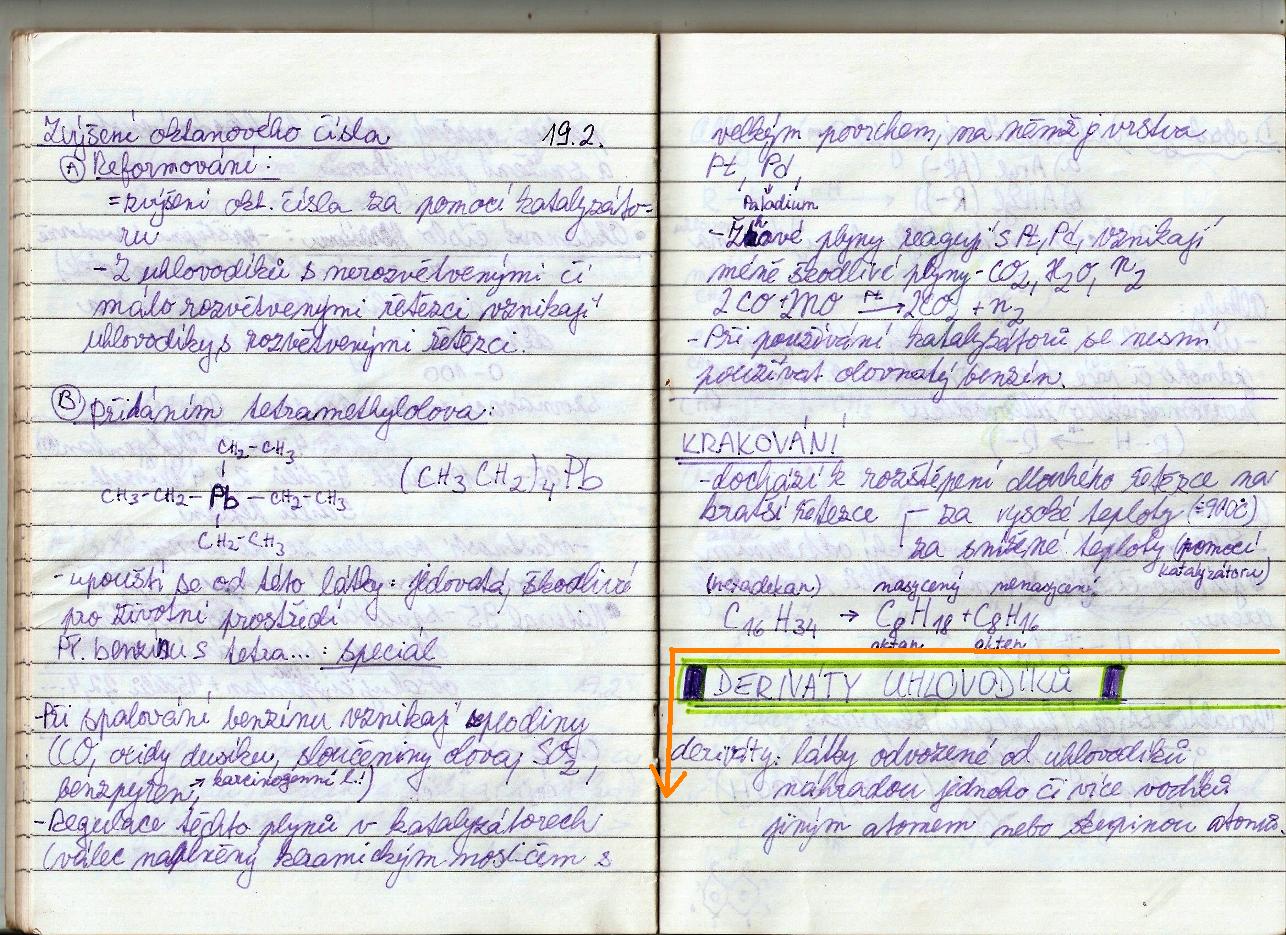 Zvýšení oktanového čísla 19.2.
Ⓐ Reformování:
=zvýšení okt. čísla za pomocí katalyzáto-
ru
- Z uhlovodíků s nerozvětvenými či
málo rozvětvenými řetězci vznikají
uhlovodíky s rozvětvenými řetězci.
Ⓑ Přidáním tetramethylolova:
CH2-CH3
CH3-CH2-Pb-CH2-CH3
CH2-CH3
(CH3CH2)4Pb
- upouští se od této látky: jedovatá, škodlivé
pro životní prostředí
Př. benzinu s tetra...: speciál
-Při spalování benzínu vznikají zplodiny
(CO, oxidy dusíku, sloučeniny olova, SO2,
benzpyren, → karcinogenní l.!)
-Regulace těchto plynů v katalyzátorech
(válec naplněný keramickým nosičem s
velkým povrchem, na němž j vrstva
Pt, Pd,
Paladium
- Žhavé plyny reagují s Pt, Pd, vznikají
méně škodlivé plyny - CO2, H2O, N2
2CO + 2NO →Pt 2CO2 + N2
-Při používání katalyzátorů se nesmí
používat olovnatý benzín.
KRAKOVÁNÍ
-dochází k rozštěpení dlouhého řetězce na
kratší řetězce - za vysoké teploty (=900°C)
za snížené teploty (pomocí
katalyzátoru)
(hexadekan) nasycený nenasycený
C16H34 → C8H18 + C8H16
oktan okten
DERIVÁTY UHLOVODÍKŮ
deriváty: látky odvozené od uhlovodíků
náhradou jednoho či více vodíků
jiným atomem nebo skupinou atomů.